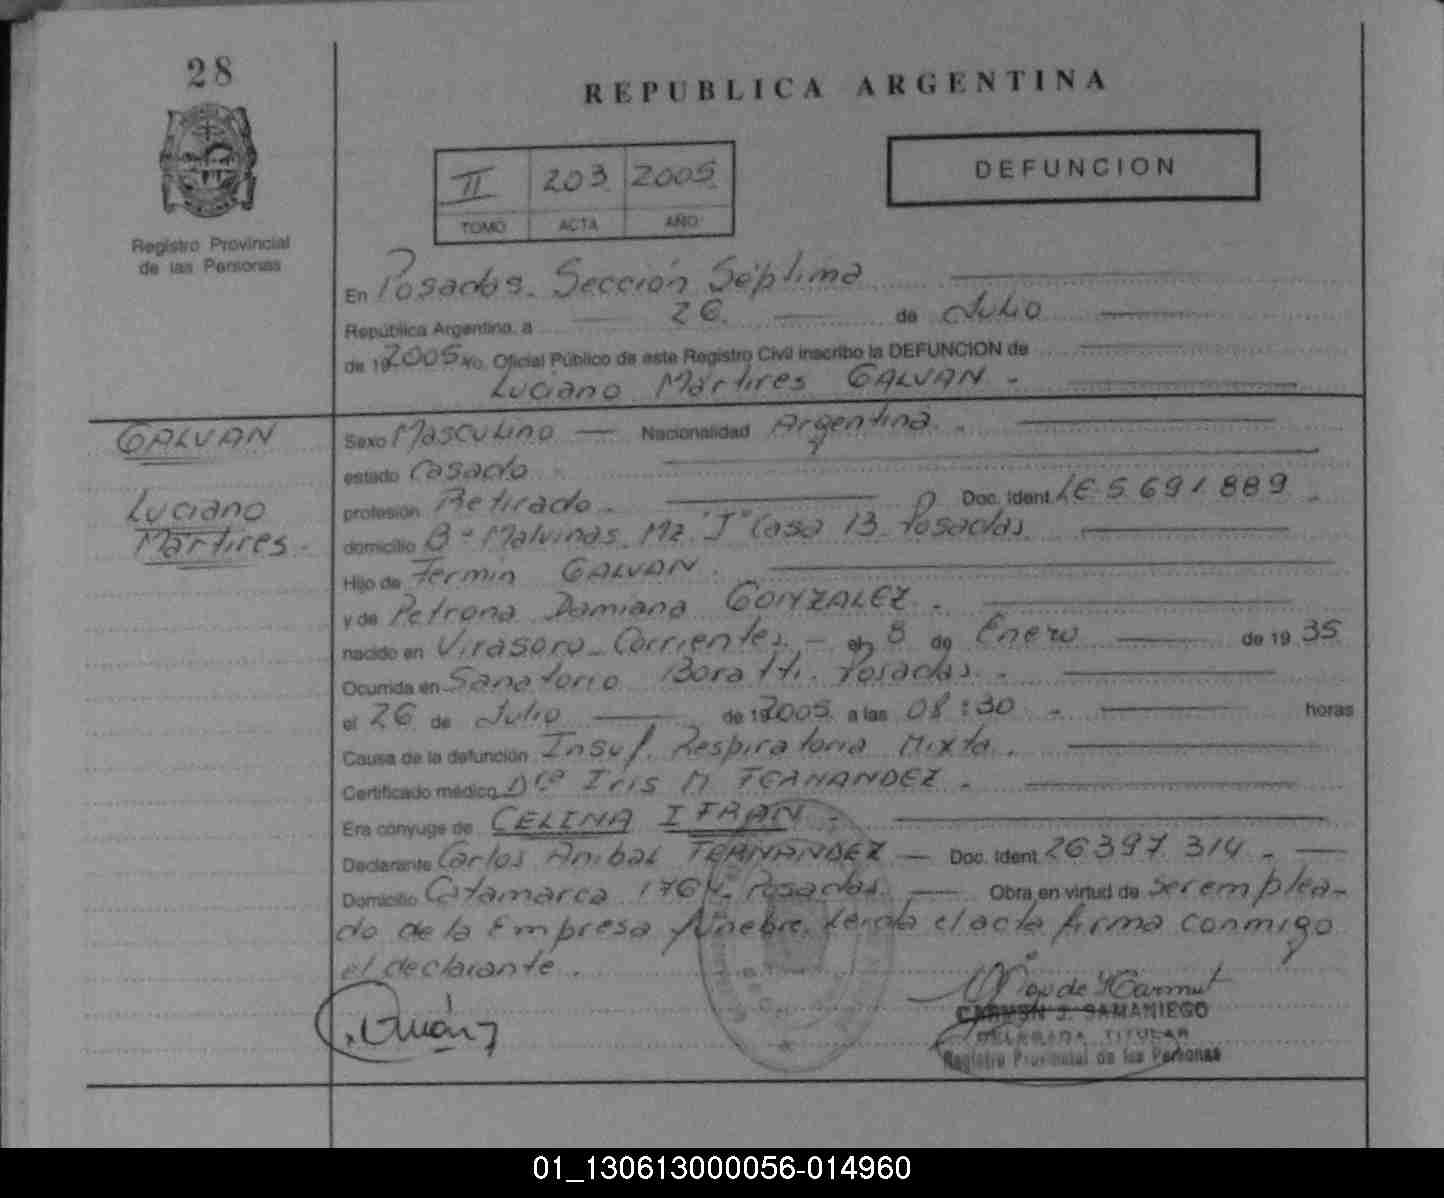 28
REPUBLICA ARGENTINA
DEFUNCION
II 203 2005
TOMO ACTA AÑO
Registro Provincial
de las Personas
En Posadas. Sección Séptima
República Argentina, a 26 de Julio
de 192005 Yo, Oficial Público de este Registro Civil inscribo la DEFUNCION de
Luciano Mártires GALVAN.
GALVAN
Luciano
Mártires.
Sexo Masculino Nacionalidad Argentina.
estado Casado
profesión Retirado. Doc. Ident. LE 5 691 889
domicilio B° Malvinas Mz "J" Casa 13 Posadas
Hijo de Fermin GALVAN.
y de Petrona Damiana GONZALEZ.
nacido en Virasoro Corrientes el 8 de Enero de 19 35
Ocurrida en Sanatorio Boratti. Posadas.
el 26 de Julio de 192005 a las 08:30 horas
Causa de la defunción Insuf. Respiratoria Mixta.
Certificado médico Dra Iris M FERNANDEZ.
Era cónyuge de CELINA IFRAN.
Declarante Carlos Anibal FERNANDEZ Doc. Ident. 26 397 314
Domicilio Catamarca 1764. Posadas. Obra en virtud de ser emplea-
do de la Empresa fúnebre. Leida el acta firma conmigo
el declarante.
CARMEN J. SAMANIEGO
DELEGADA TITULAR
Registro Provincial de las Personas
01_130613000056-014960